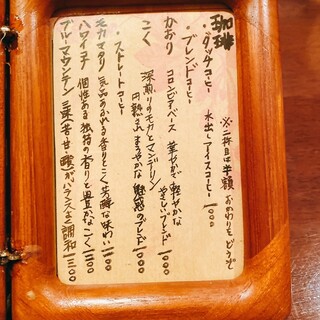 珈琲
※二杯目は半額 おかわりをどうぞ
・ダッチコーヒー 水出しアイスコーヒー 一〇〇〇
・ブレンドコーヒー
かおり コロンビアベース 華やかで軽やかな
やさしいブレンド
こく 深煎りのモカとマンデリン
円熟され まろやかな 魅惑のブレンド 一〇〇〇
・ストレートコーヒー
モカマタリ 気品あふれる香りとこく芳醇な味わい 一一〇〇
ハワイコナ 個性ある 独特の香りと豊かなこく 一三〇〇
ブルーマウンテン 酸が バランスよく調和 一三〇〇